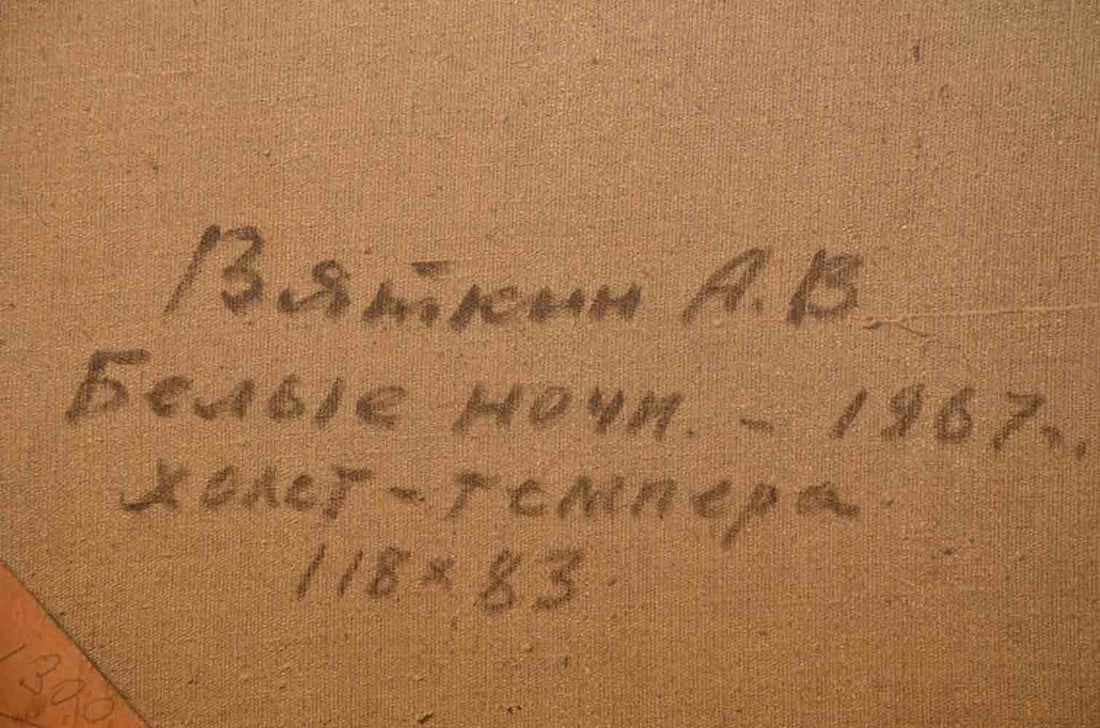 Вяткин А.В.
Белые ночи. - 1967г.,
холст-темпера
118×83